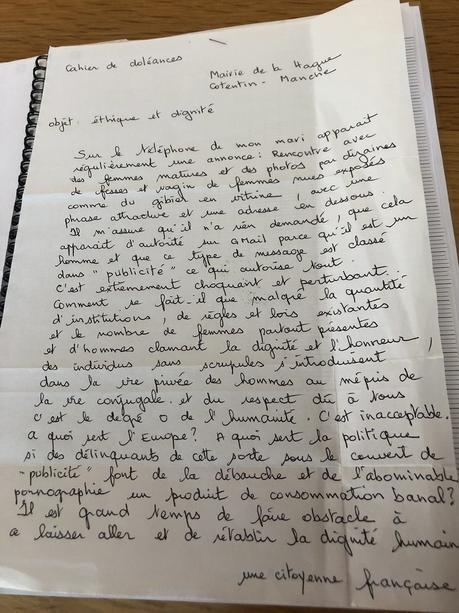 Cahier de doléances
Mairie de la Hague
Cotentin - Manche
objet : éthique et dignité
Sur le téléphone de mon mari apparait
régulièrement une annonce : Rencontre avec
des femmes matures et des photos par dizaines
de fesses et vagin de femmes nues exposés
comme du gibier en vitrine, avec une
phrase attractive et une adresse en dessous.
Il m'assure qu'il n'a rien demandé, que cela
apparait d'autorité sur GMail parce qu'il est un
homme et que ce type de message est classé
dans "publicité" ce qui autorise tout.
C'est extrêmement choquant et perturbant.
Comment se fait-il que malgré la quantité
d'institutions, de règles et lois existantes
et le nombre de femmes partout présentes
et d'hommes clamant la dignité et l'honneur,
des individus sans scrupules s'introduisent
dans la vie privée des hommes au mépris de
la vie conjugale et du respect dû à tous
C'est le degré 0 de l'humanité. C'est inacceptable.
A quoi sert l'Europe ? A quoi sert la politique
si des délinquants de cette sorte sous le couvert de
"publicité" font de la débauche et de l'abominable
pornographie un produit de consommation banal ?
Il est grand temps de faire obstacle à
ce laisser aller et de rétablir la dignité humain
une citoyenne française